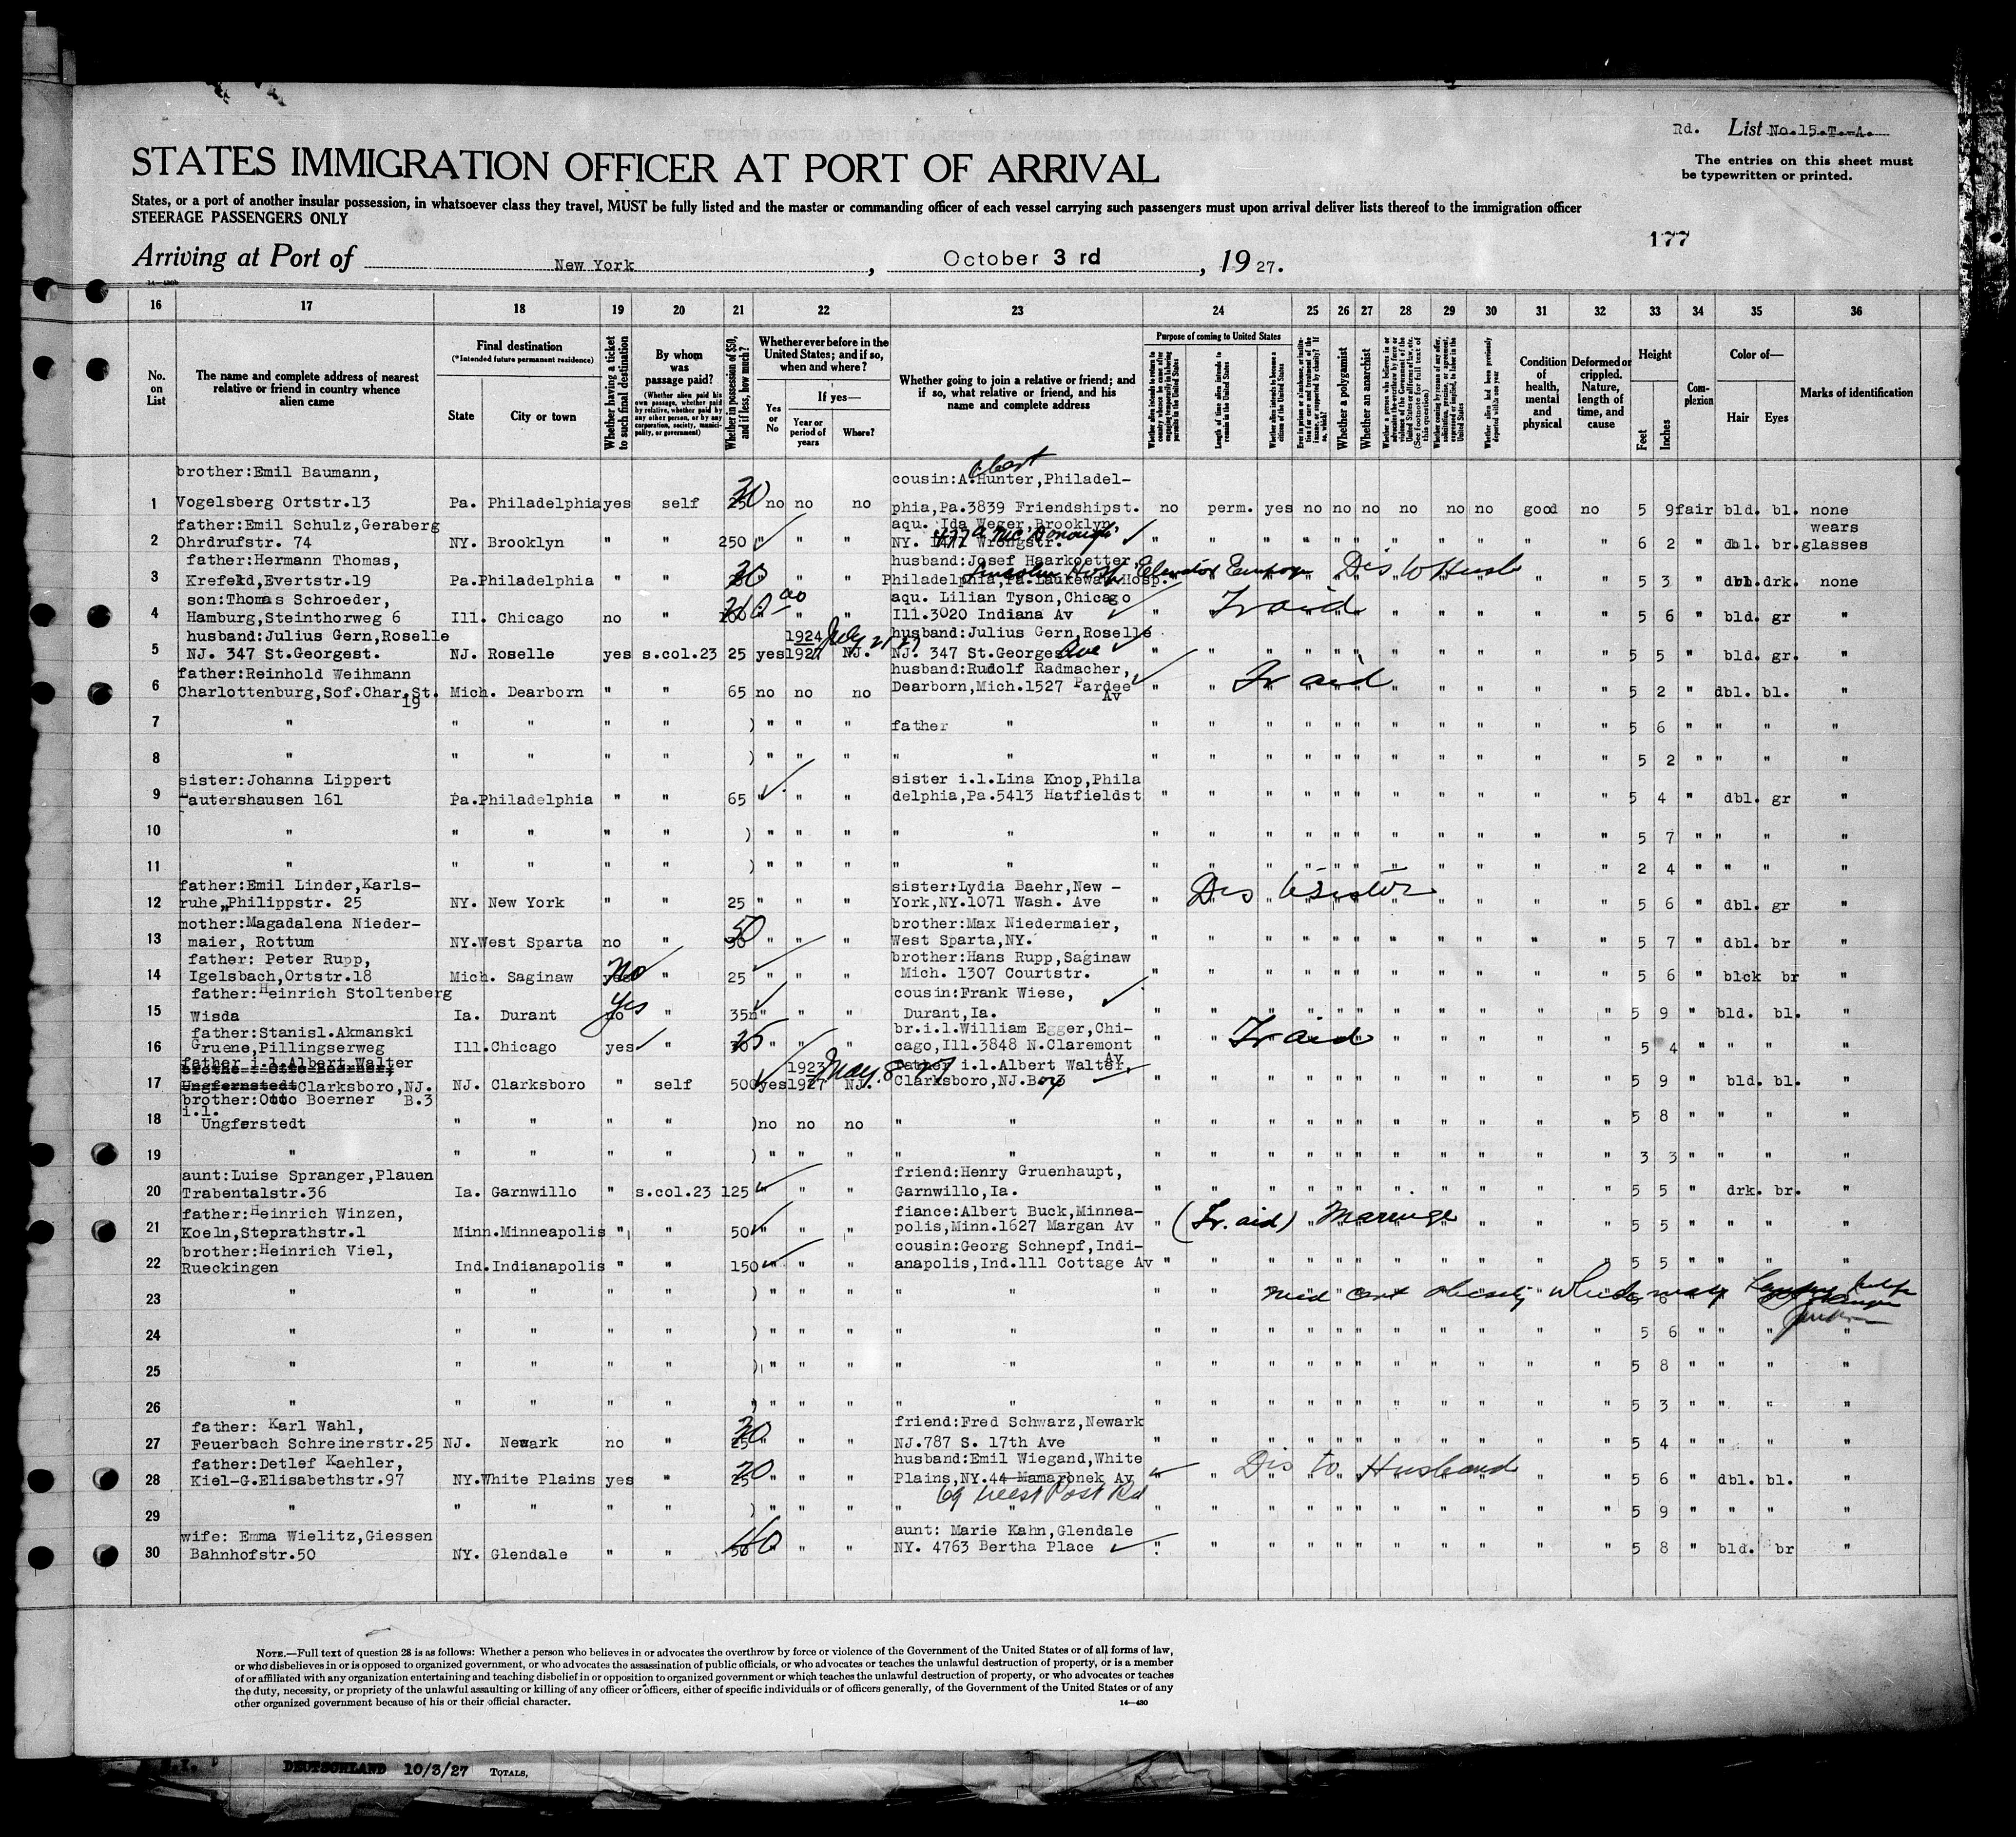 Rd. List No.15.T.A.
The entries on this sheet must
be typewritten or printed.
STATES IMMIGRATION OFFICER AT PORT OF ARRIVAL
States, or a port of another insular possession, in whatsoever class they travel, MUST be fully listed and the master or commanding officer of each vessel carrying such passengers must upon arrival deliver lists thereof to the immigration officer
STEERAGE PASSENGERS ONLY
177
Arriving at Port of New York, October 3 rd, 1927.
16 17 18 19 20 21 22 23 24 25 26 27 28 29 30 31 32 33 34 35 36
No. on List
The name and complete address of nearest relative or friend in country whence alien came
Final destination
(*Intended future permanent residence)
State
City or town
Whether having a ticket to such final destination
By whom was passage paid?
(Whether alien paid his own passage, whether paid by relative, whether paid by any other person, or by any corporation, society, municipality, or government)
Whether in possession of $50, and if less, how much?
Whether ever before in the United States; and if so, when and where?
Yes or No
If yes—
Year or period of years
Where?
Whether going to join a relative or friend; and if so, what relative or friend, and his name and complete address
Purpose of coming to United States
Length of time alien intends to remain in the United States
Whether alien intends to become a citizen of the United States
Whether a polygamist
Whether an anarchist
Condition of health, mental and physical
Deformed or crippled. Nature, length of time, and cause
Height
Feet
Inches
Complexion
Color of—
Hair
Eyes
Marks of identification
brother:Emil Baumann, cousin:A.Hunter,Philadel-
1 Vogelsberg Ortstr.13 Pa. Philadelphia yes self 30 no no no phia,Pa.3839 Friendshipst. no perm. yes no no no no no no good no 5 9 fair bld. bl. none
father:Emil Schulz,Geraberg aqu. Ida Weger,Brooklyn, wears
2 Ohrdrufstr. 74 NY. Brooklyn " " 250 " " " NY. " " " " " " " " " " " 6 2 " dbl. br. glasses
father:Hermann Thomas, husband:Josef Haarkoetter,
3 Krefeld,Evertstr.19 Pa.Philadelphia " " 30 " " Philadelphia,Pa. Lankewau Hosp. Dis to Husb 5 3 " dbl. drk. none
son:Thomas Schroeder, aqu. Lilian Tyson,Chicago
4 Hamburg,Steinthorweg 6 Ill. Chicago no " " " " Ill.3020 Indiana Av " Tr aid 5 6 " bld. gr "
husband:Julius Gern,Roselle 1924 July husband:Julius Gern,Roselle
5 NJ. 347 St.Georgest. NJ. Roselle yes s.col.23 25 yes 1927 NJ. NJ. 347 St.Georges Ave " " " " " " " " " " " 5 5 " bld. gr. "
father:Reinhold Weihmann husband:Rudolf Radmacher,
6 Charlottenburg,Sof.Char.St. 19 Mich. Dearborn " " 65 no no no Dearborn,Mich.1527 Pardee Av " " Tr aid 5 2 " dbl. bl. "
7 " " " " " ) " " " father " " " " " " " " " " " " " 5 6 " " " "
8 " " " " " ) " " " " " " " " " " " " " " " " " 5 2 " " " "
sister:Johanna Lippert sister i.l.Lina Knop,Phila
9 Lautershausen 161 Pa.Philadelphia " " 65 " " " delphia,Pa.5413 Hatfieldst " " " " " " " " " " " 5 4 " dbl. gr "
10 " " " " " ) " " " " " " " " " " " " " " " " " 5 7 " " " "
11 " " " " " ) " " " " " " " " " " " " " " " " " 2 4 " " " "
father:Emil Linder,Karls- sister:Lydia Baehr,New -
12 ruhe,Philippstr. 25 NY. New York " " 25 " " " York,NY.1071 Wash. Ave " Dis to Sister 5 6 " dbl. gr "
mother:Magadalena Nieder- brother:Max Niedermaier,
13 maier, Rottum NY.West Sparta no " 50 " " " West Sparta,NY. " " " " " " " " " " " 5 7 " dbl. br "
father: Peter Rupp, brother:Hans Rupp,Saginaw
14 Igelsbach,Ortstr.18 Mich. Saginaw No " 25 " " " Mich. 1307 Courtstr. " " " " " " " " " " " 5 6 " blck br "
father:Heinrich Stoltenberg cousin:Frank Wiese,
15 Wisda Ia. Durant Yes " 35 " " " Durant,Ia. " " " " " " " " " " " 5 9 " bld. bl. "
father:Stanisl.Akmanski br.i.l.William Egger,Chi-
16 Gruene,Pillingserweg Ill.Chicago yes " 25 " " " cago,Ill.3848 N.Claremont Av " " Tr aid 5 4 " " " "
father i.l.Albert Walter 1923 May. 8 27 father i.l.Albert Walter,
17 Ungfernstedt Clarksboro,NJ. B.3 NJ. Clarksboro " self 500 yes 1927 NJ. Clarksboro,NJ.Box 3 " " " " " " " " " " " 5 9 " bld. bl. "
brother:Otto Boerner
i.l.
18 Ungferstedt " " " " ) no no no " " " " " " " " " " " " " 5 8 " " " "
19 " " " " " ) " " " " " " " " " " " " " " " " " 3 3 " " " "
aunt:Luise Spranger,Plauen friend:Henry Gruenhaupt,
20 Trabentalstr.36 Ia. Garnwillo " s.col.23 125 " " " Garnwillo,Ia. " " " " " " " " " " " 5 5 " drk. br. "
father:Heinrich Winzen, fiance:Albert Buck,Minnea-
21 Koeln,Steprathstr.1 Minn.Minneapolis " " 50 " " " polis,Minn.1627 Margan Av " (Tr. aid) Marriage 5 5 " " " "
brother:Heinrich Viel, cousin:Georg Schnepf,Indi-
22 Rueckingen Ind.Indianapolis " " 150 " " " anapolis,Ind.111 Cottage Av " " " " " " " " " " " 5 5 " " " "
23 " " " " " ) " " " " " " " med cert obesity which may
24 " " " " " ) " " " " " " " " " " " " " " " " " 5 6 " " " "
25 " " " " " ) " " " " " " " " " " " " " " " " " 5 8 " " " "
26 " " " " " ) " " " " " " " " " " " " " " " " " 5 3 " " " "
father: Karl Wahl, friend:Fred Schwarz,Newark
27 Feuerbach Schreinerstr.25 NJ. Newark no " 30 " " " NJ.787 S. 17th Ave " " " " " " " " " " " 5 4 " " " "
father:Detlef Kaehler, husband:Emil Wiegand,White
28 Kiel-G.Elisabethstr.97 NY.White Plains yes " 20 " " " Plains,NY.44 Mamaronek Av " " Dis to Husband 5 6 " dbl. bl. "
69 West Post Rd
29 " " " " " ) " " " " " " " " " " " " " " " " " 5 9 " " " "
wife: Emma Wielitz,Giessen aunt: Marie Kahn,Glendale
30 Bahnhofstr.50 NY. Glendale " " 40 " " " NY. 4763 Bertha Place " " " " " " " " " " " 5 8 " bld. br "
NOTE.—Full text of question 28 is as follows: Whether a person who believes in or advocates the overthrow by force or violence of the Government of the United States or of all forms of law,
or who disbelieves in or is opposed to organized government, or who advocates the assassination of public officials, or who advocates or teaches the unlawful destruction of property, or is a member
of or affiliated with any organization entertaining and teaching disbelief in or opposition to organized government or which teaches the unlawful destruction of property, or who advocates or teaches
the duty, necessity, or propriety of the unlawful assaulting or killing of any officer or officers, either of specific individuals or of officers generally, of the Government of the United States or of any
other organized government because of his or their official character.
14—430
DEUTSCHLAND 10/3/27 TOTALS,